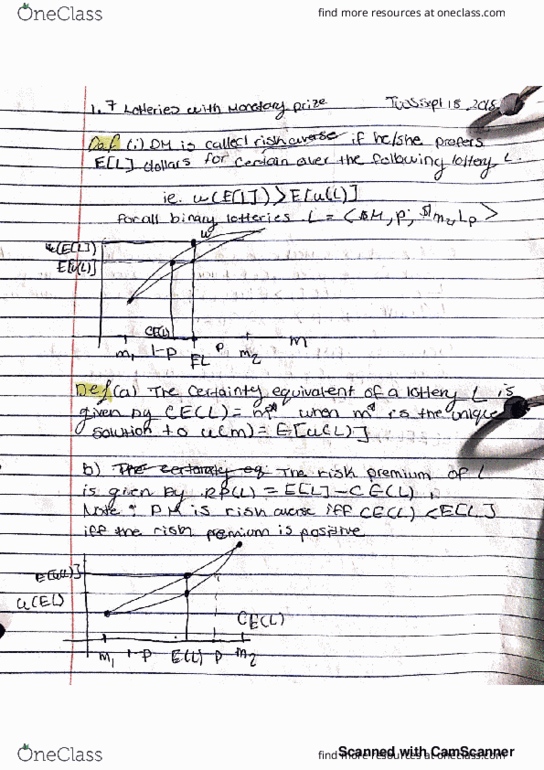 OneClass
find more resources at oneclass.com
1.7 Lotteries with Monetary prize
Tues Sept 18, 2018
Def (i) DM is called risk averse if he/she prefers
E[L] dollars for certain over the following lottery L.
ie. u(E[L]) > E[u(L)]
For all binary lotteries L = < $M, p;
u(E[L])
E[u(L)]
u
CE(L)
m
m₁ 1-p EL p m₂
Def (a) The certainty equivalent of a lottery L is
given by CE(L) = m* when m* is the unique
solution to u(m) = E[u(L)]
b) The certainty eq. The risk premium of L
is given by RP(L) = E[L] - CE(L),
Note: DM is risk averse iff CE(L) < E[L]
iff the risk premium is positive
E[u(L)]
u(EL)
CE(L)
m₁ 1-p E(L) p m₂
OneClass
find more resources at oneclass.com
Scanned with CamScanner